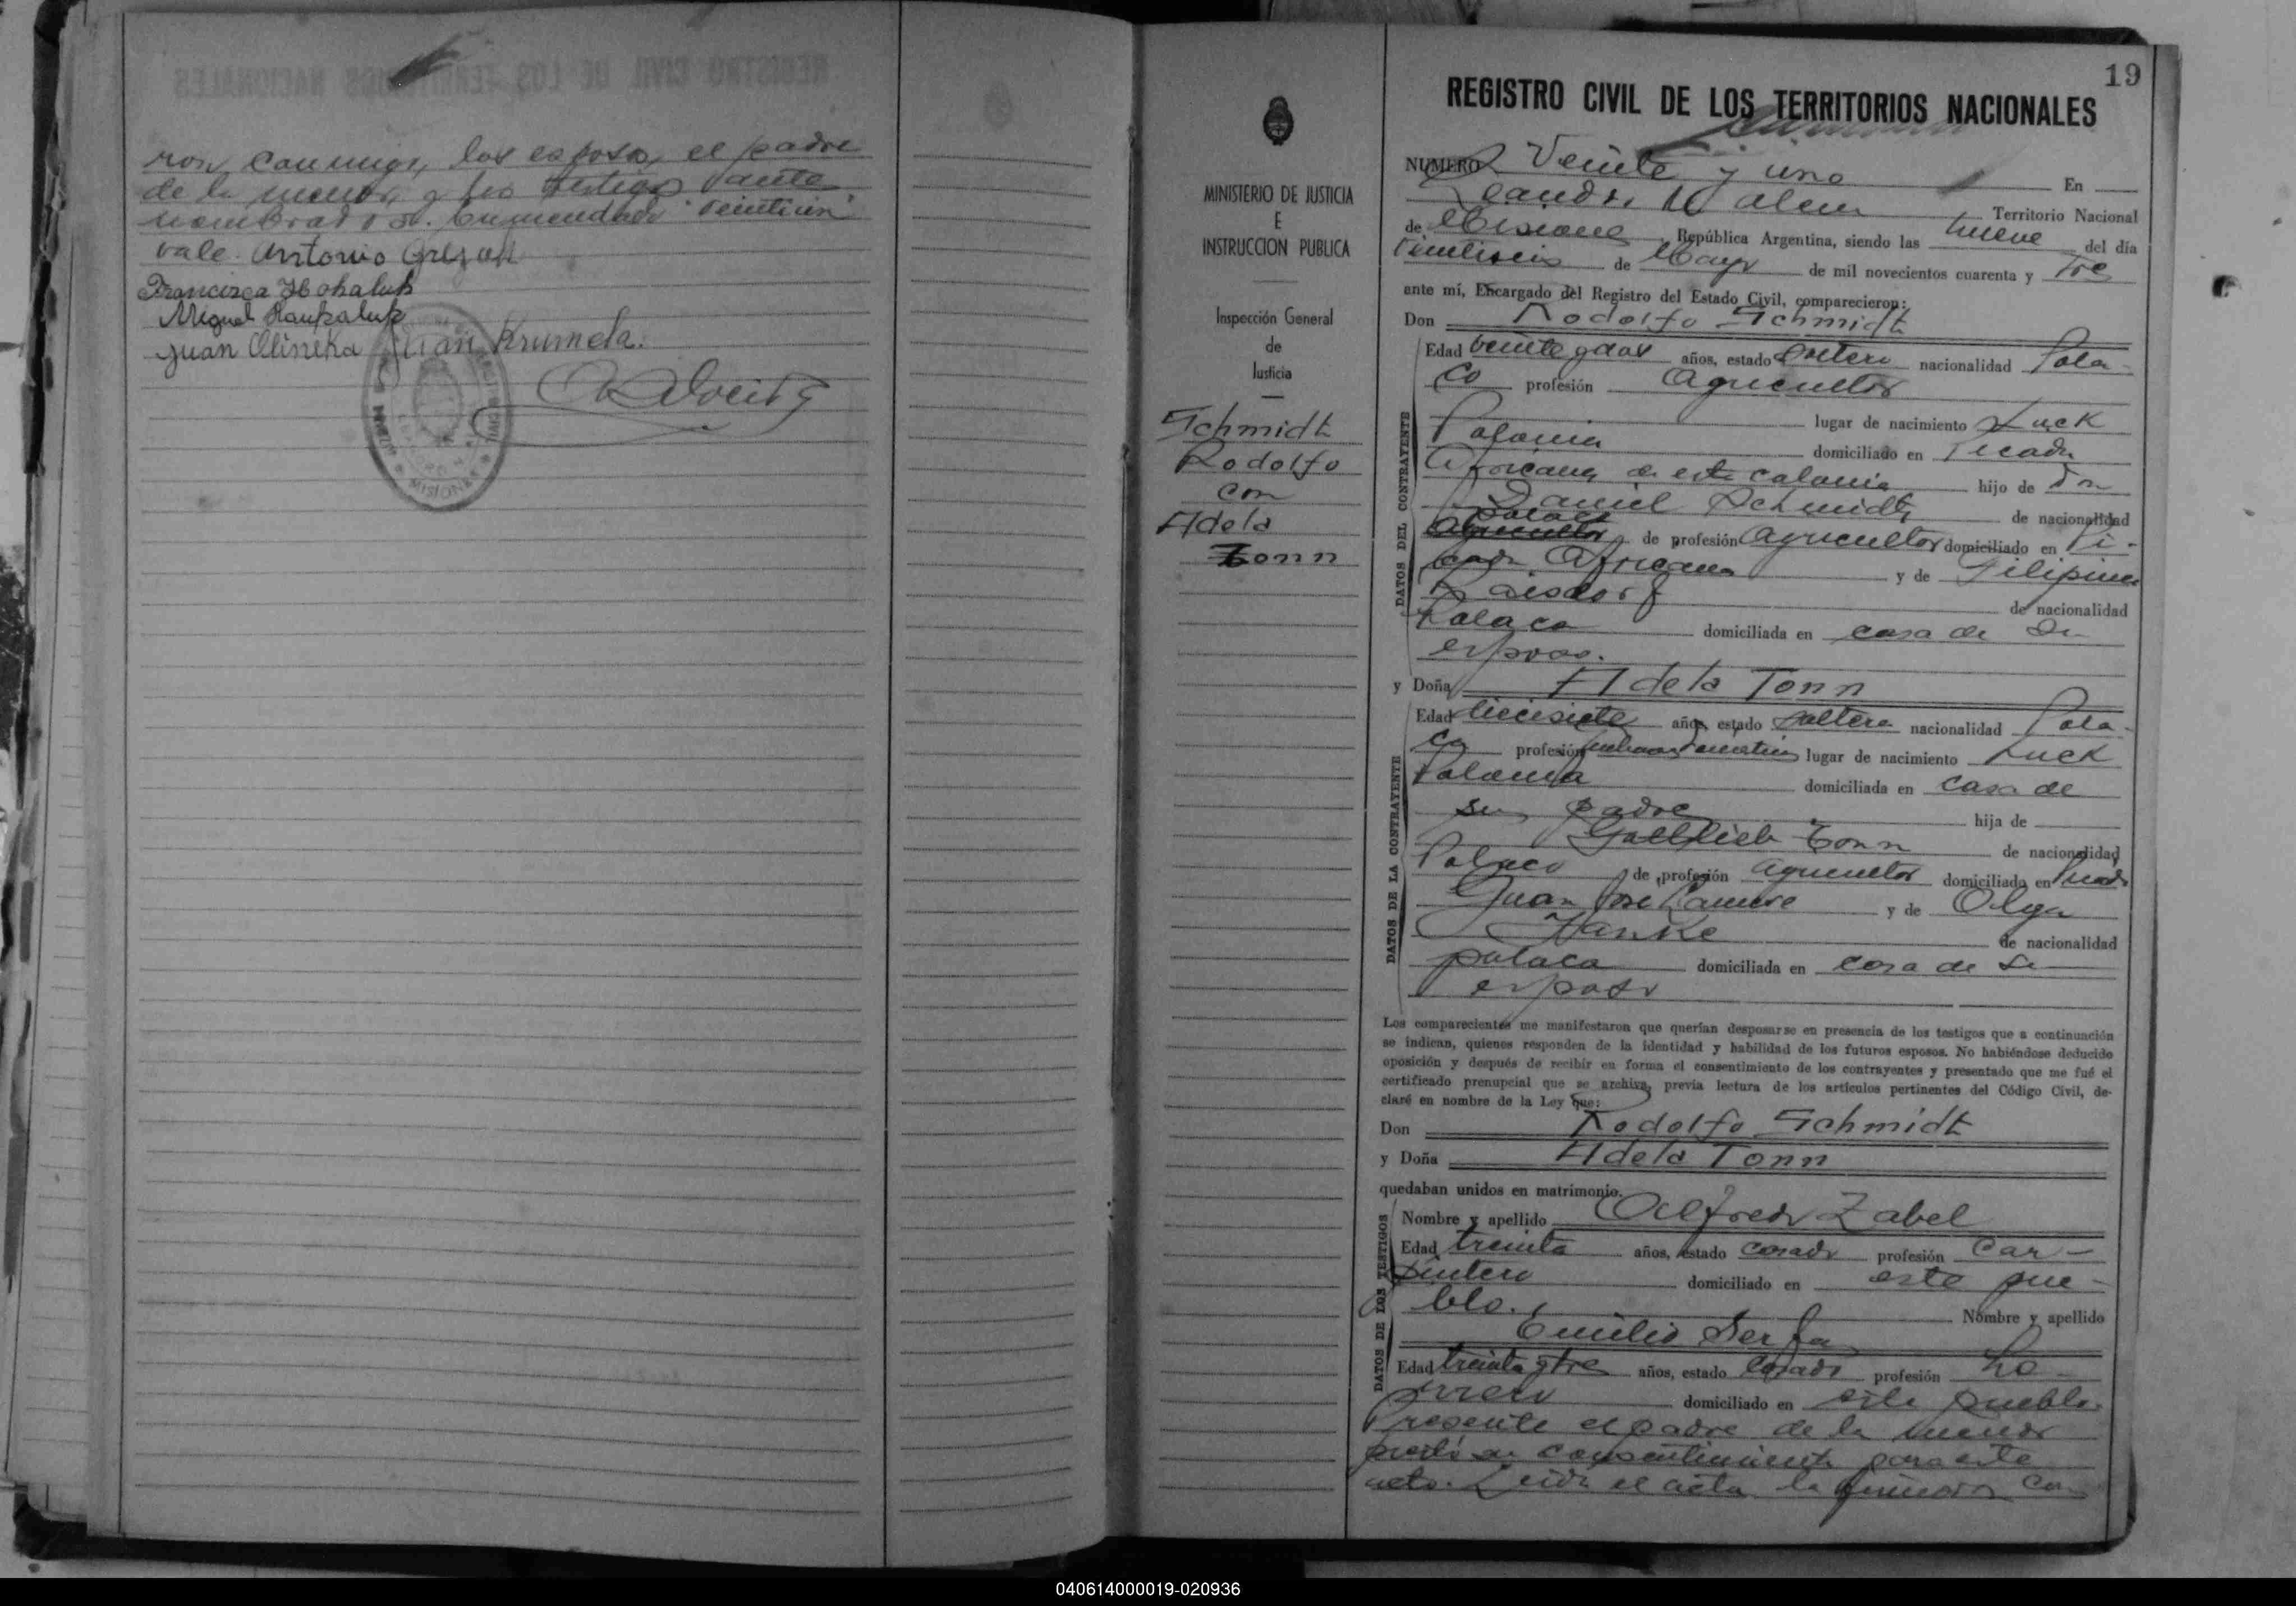 ron conmigo, los esposos, el padre
de la menor, y los testigos antes
nombrados. Enmendado "veintiun"
vale. Antonio
Francisca Hohaluk
Miguel
Juan Olineka Juan Krumela.
MISIONES
19
REGISTRO CIVIL DE LOS TERRITORIOS NACIONALES
MINISTERIO DE JUSTICIA
E
INSTRUCCION PUBLICA
Inspección General
de
Justicia
Schmidt
Rodolfo
con
Adela
Tonn
NUMERO Veinte y uno En
Leandro N Alem Territorio Nacional
de Misiones República Argentina, siendo las nueve del día
veintiseis de Mayo de mil novecientos cuarenta y tres
ante mí, Encargado del Registro del Estado Civil, comparecieron:
Don Rodolfo Schmidt
DATOS DEL CONTRAYENTE
Edad veinte y dos años, estado soltero nacionalidad Pola-
co profesión Agricultor
lugar de nacimiento Luck
Polonia domiciliado en Picada
Africana de esta colonia hijo de Don
Daniel Schmidt, de nacionalidad
polaco de profesión agricultor domiciliado en Pi-
cada Africana y de Filipina
Raisdorf de nacionalidad
Polaca domiciliada en casa de su
esposo.
y Doña Adela Tonn
DATOS DE LA CONTRAYENTE
Edad diecisiete años, estado soltera nacionalidad Pola-
ca profesión lugar de nacimiento Luck
Polonia domiciliada en casa de
su padre hija de
Gottlieb Tonn de nacionalidad
Polaco de profesión agricultor domiciliado en Picada
Juan José Ramire y de Olga
Janke de nacionalidad
polaca domiciliada en casa de su
esposo
Los comparecientes me manifestaron que querían desposarse en presencia de los testigos que a continuación
se indican, quienes responden de la identidad y habilidad de los futuros esposos. No habiéndose deducido
oposición y después de recibir en forma el consentimiento de los contrayentes y presentado que me fué el
certificado prenupcial que se archiva, previa lectura de los artículos pertinentes del Código Civil, de-
claré en nombre de la Ley que:
Don Rodolfo Schmidt
y Doña Adela Tonn
quedaban unidos en matrimonio.
DATOS DE LOS TESTIGOS
Nombre y apellido Alfredo Zabel
Edad treinta años, estado casado profesión Car-
pintero domiciliado en este pue-
blo. Nombre y apellido
Emilio Serfa
Edad treinta y tres años, estado casado profesión he-
rrero domiciliado en este pueblo.
Presente el padre de la menor
prestó su consentimiento para este
acto. Leida el acta la firmaron con
040614000019-020936